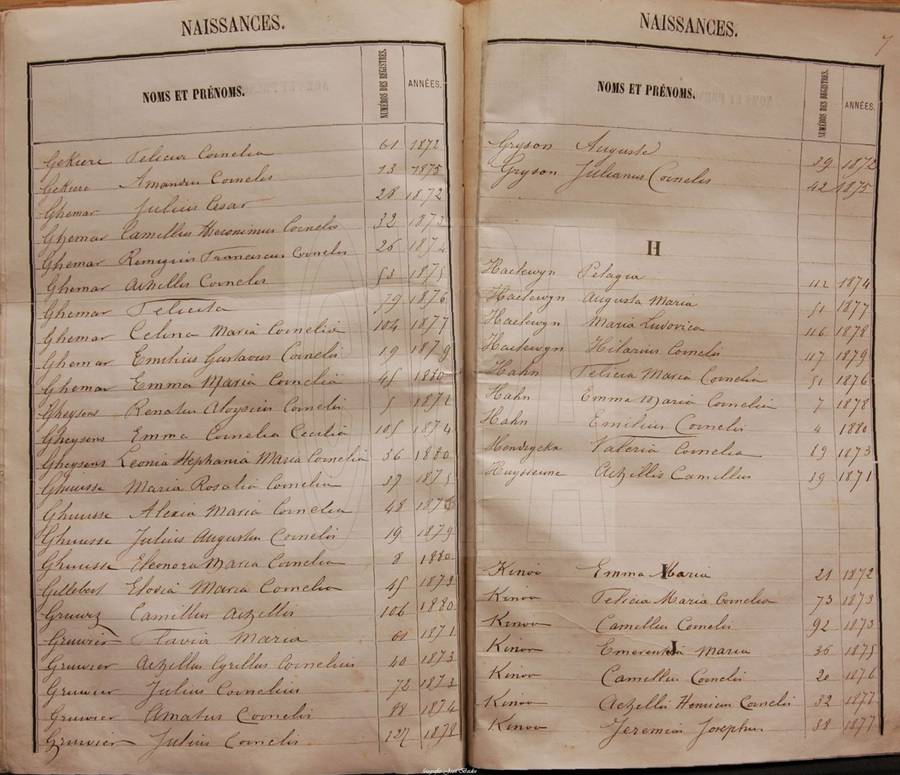 NAISSANCES.
NOMS ET PRÉNOMS. NUMÉROS DES REGISTRES. ANNÉES.
Gekiere Felicia Cornelia 61 1872
Gekiere Amandus Cornelis 13 1875
Ghemar Julius Cesar 28 1872
Ghemar Camillus Hieronimus Cornelis 32 1873
Ghemar Remigius Franciscus Cornelis 26 1874
Ghemar Achillis Cornelis 53 1875
Ghemar Felicita 79 1876
Ghemar Celina Maria Cornelia 104 1877
Ghemar Emilius Gustavus Cornelis 19 1879
Ghemar Emma Maria Cornelia 45 1880
Gheysens Renatus Aloysius Cornelis 5 1872
Gheysens Emma Cornelia Cecilia 105 1874
Gheysens Leonia Stephania Maria Cornelia 36 1880
Gheusse Maria Rosalia Cornelia 37 1875
Gheusse Alexia Maria Cornelia 48 1876
Gheusse Julius Augustus Cornelis 19 1879
Gheusse Eleonora Maria Cornelia 8 1880
Gillebert Eloisia Maria Cornelia 45 1873
Gruwez Camillus Achillis 106 1880
Gruwier Flavia Maria 61 1871
Gruwier Achillus Cyrillus Cornelius 40 1873
Gruwier Julius Cornelis 72 1873
Gruwier Amatus Cornelis 88 1874
Gruwier Julius Cornelis 127 1878
NAISSANCES. 7
NOMS ET PRÉNOMS. NUMÉROS DES REGISTRES. ANNÉES.
Gryson Auguste 29 1872
Gryson Julianus Cornelis 42 1875
H
Haelewyn Pelagia 42 1874
Haelewyn Augusta Maria 51 1877
Haelewyn Maria Ludovica 116 1878
Haelewyn Hilarius Cornelis 117 1879
Hahn Felicia Maria Cornelia 51 1876
Hahn Emma Maria Cornelia 7 1878
Hahn Emilius Cornelis 4 1880
Hendryckx Valeria Cornelia 19 1873
Huyseune Achillis Camillus 39 1871
I
Kinoo Emma Maria 21 1872
Kinoo Felicia Maria Cornelia 73 1873
Kinoo Camillus Cornelis 92 1873
J
Kinoo Emerentia Maria 36 1875
Kinoo Camillus Cornelis 20 1876
Kinoo Achillis Henricus Cornelis 32 1877
Kinoo Jeremias Josephus 38 1877